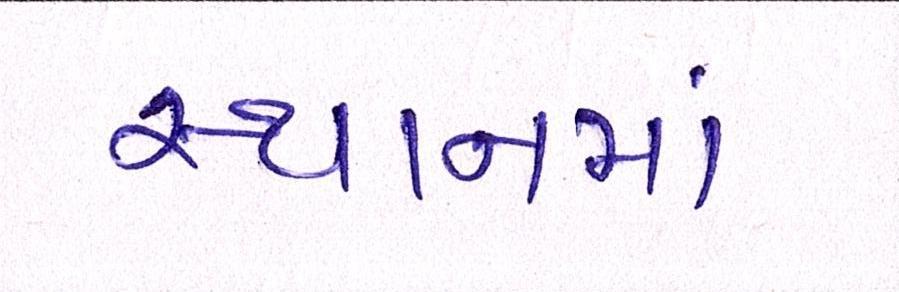 સ્થાનમાં